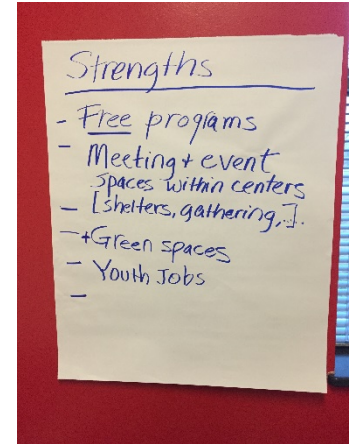 Strengths
- Free programs
- Meeting + event
spaces within centers
- [shelters, gathering,].
- + Green spaces
- Youth Jobs
-